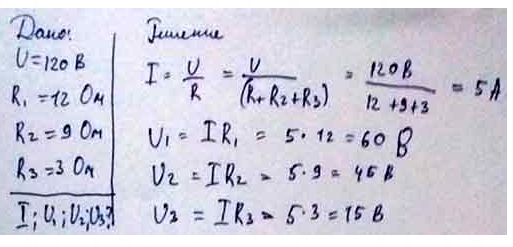 Дано:
U=120 В
R₁ =12 Ом
R₂ =9 Ом
R₃ =3 Ом
I; U₁; U₂; U₃?
Решение
I = U/R = U/(R+R₂+R₃) = 120 В/12+9+3 = 5 А
U₁ = IR₁ = 5·12 = 60 В
U₂ = IR₂ = 5·9 = 45 В
U₃ = IR₃ = 5·3 = 15 В